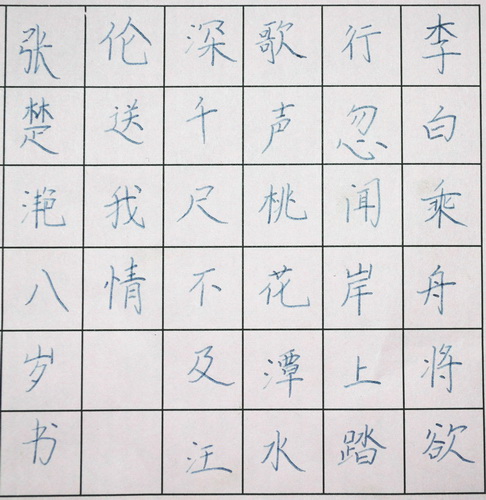 李白乘舟将欲
行忽闻岸上踏
歌声桃花潭水
深千尺不及汪
伦送我情
张楚滟八岁书